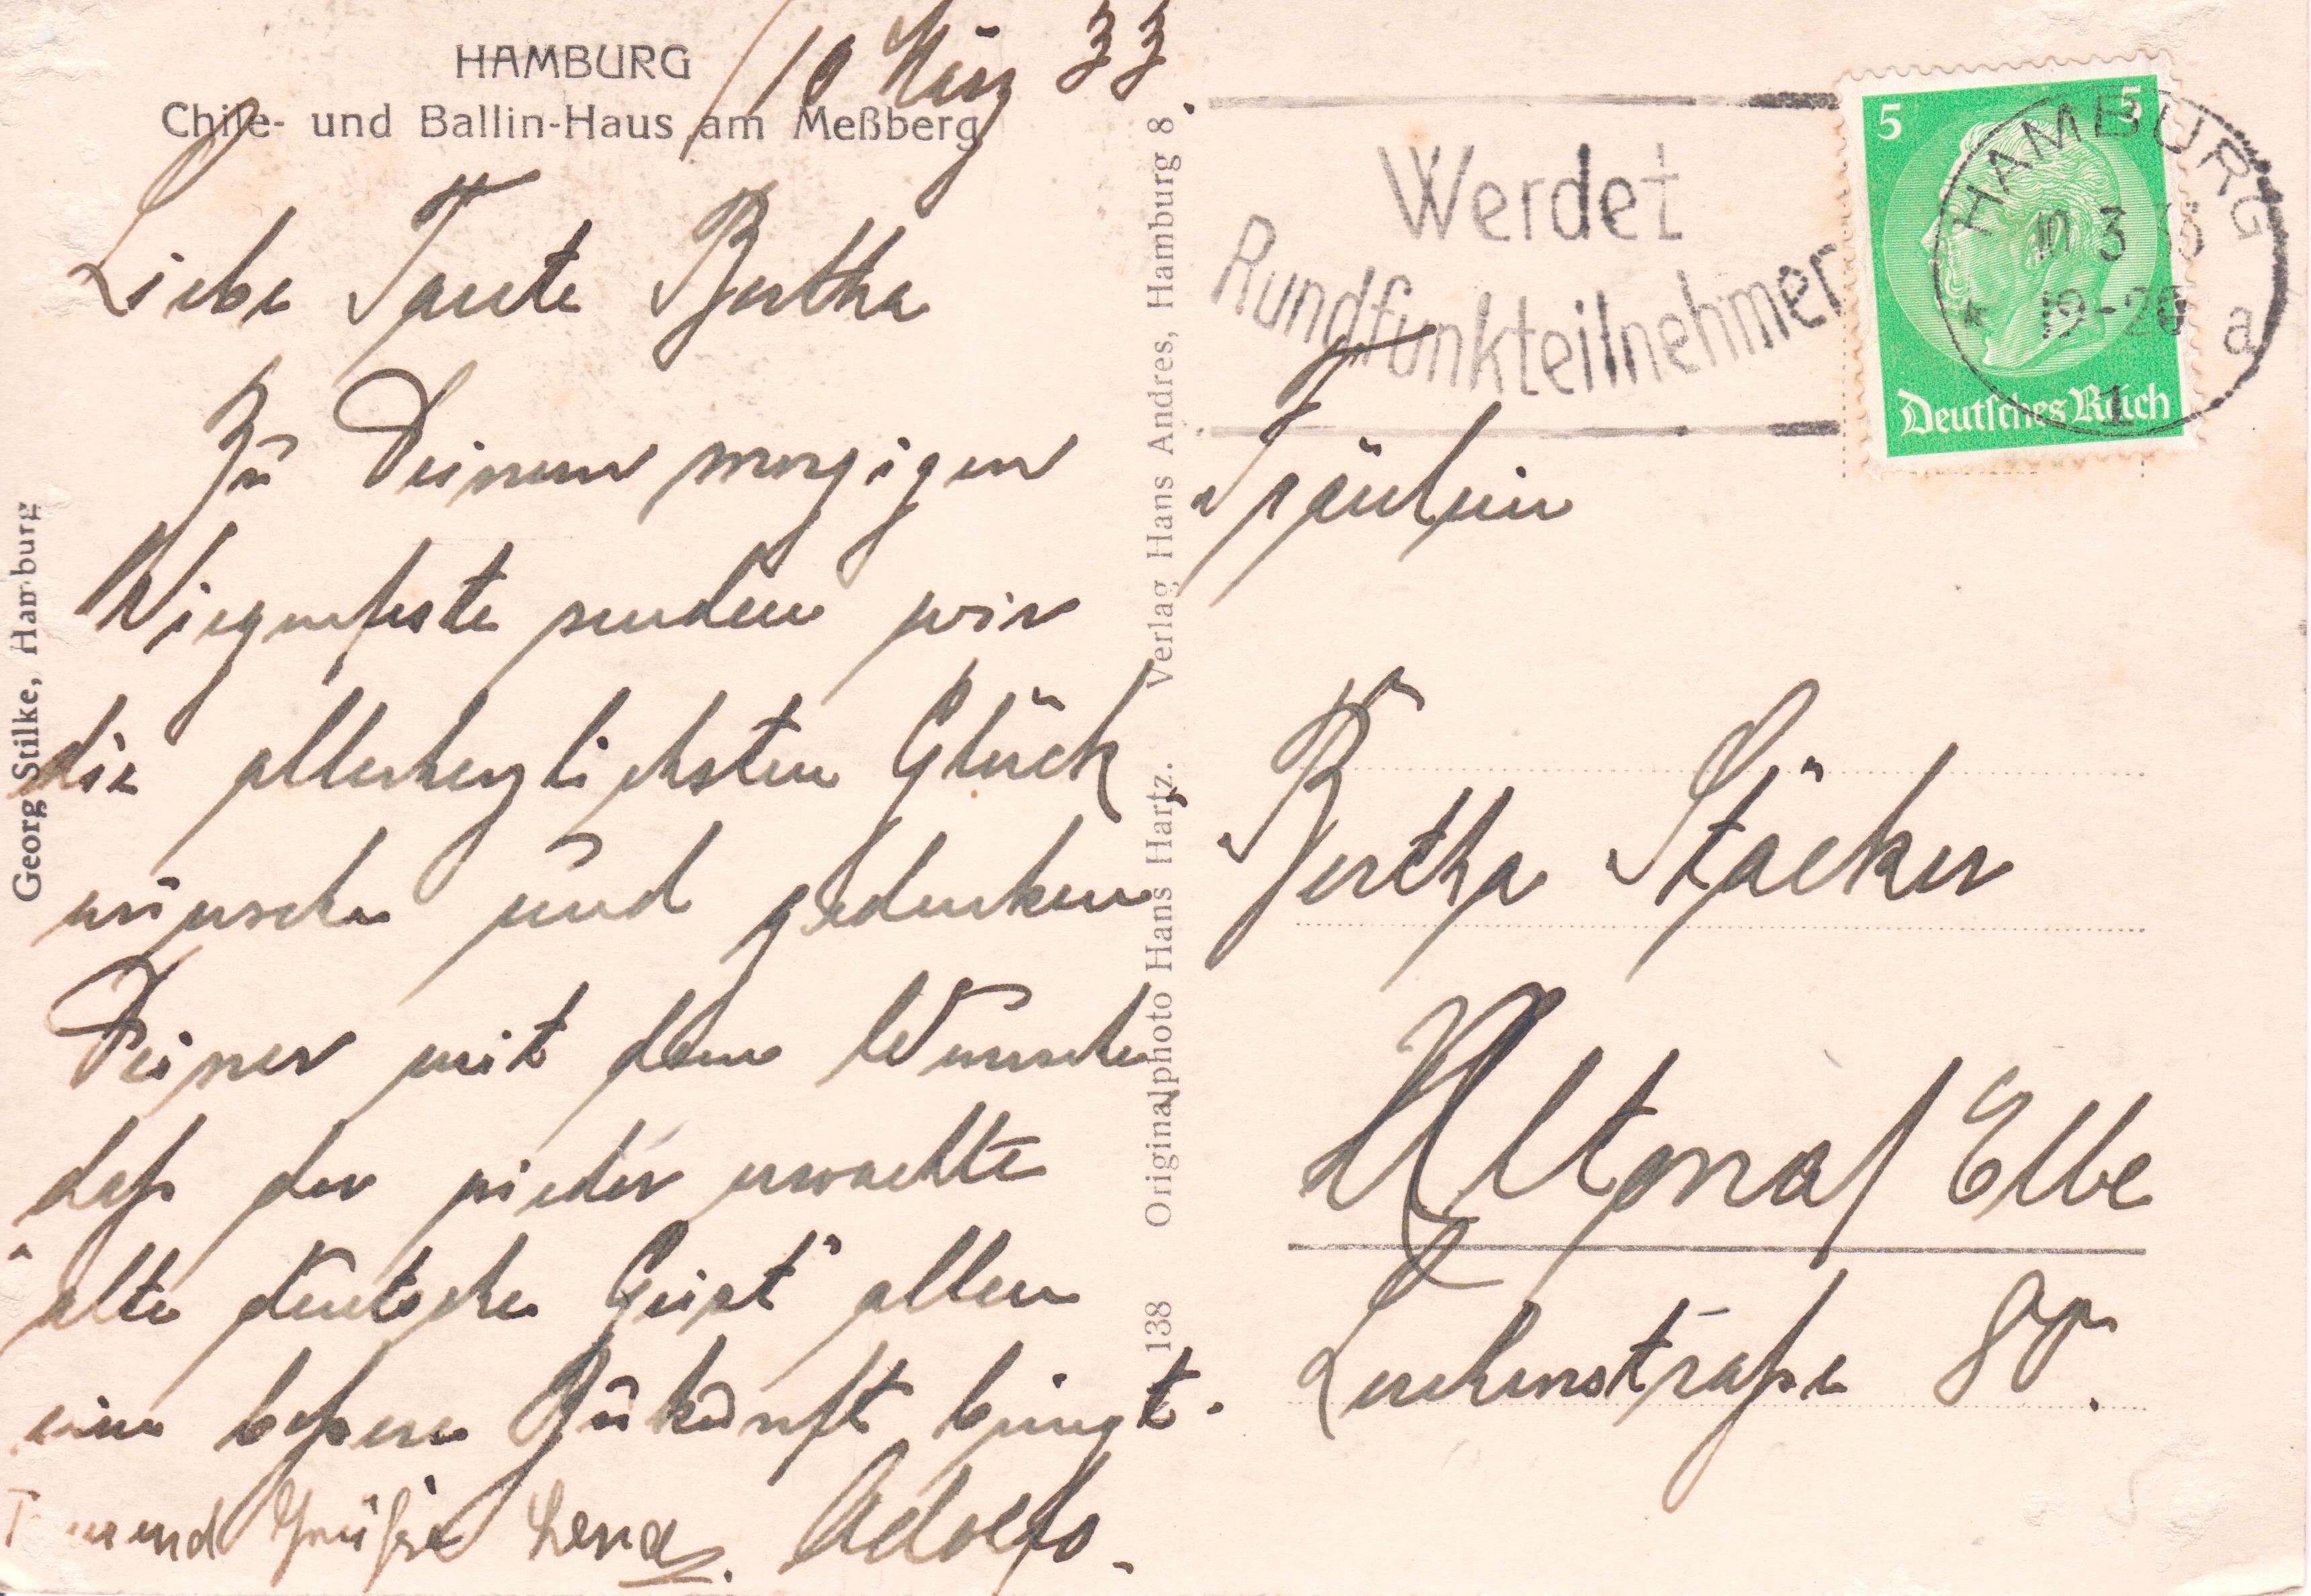 HAMBURG
Chile- und Ballin-Haus am Meßberg
10 März 33.
Liebe Tante Bertha
Zu Deinem morgigen
Wiegenfeste senden wir
die allerherzlichsten Glück
wünsche und gedenken
Deiner mit dem Wunsche
daß der wieder erwachte
"alte deutsche Geist" allen
eine bessere Zukunft bringt.
Tausend Grüße Lena. Adolfo.
Georg Stilke, Hamburg
138 Originalphoto Hans Hartz. Verlag Hans Andres, Hamburg 8
Werdet
Rundfunkteilnehmer
5 5
Deutsches Reich
HAMBURG
10 3 33
19-20
* a
1
Fräulein
Bertha Stäcker
Altona/Elbe
Lerchenstraße